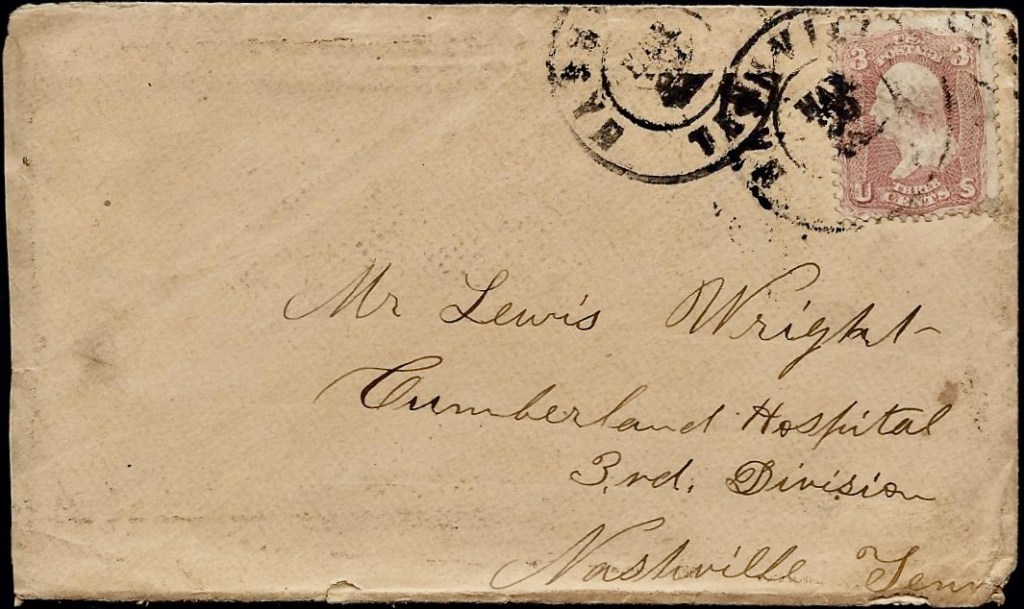 NASHVILLE TEN
MAR
3 U.S. POSTAGE 3
U THREE CENTS S
Mr Lewis Wright
Cumberland Hospital
3.rd. Division
Nashville Tenn